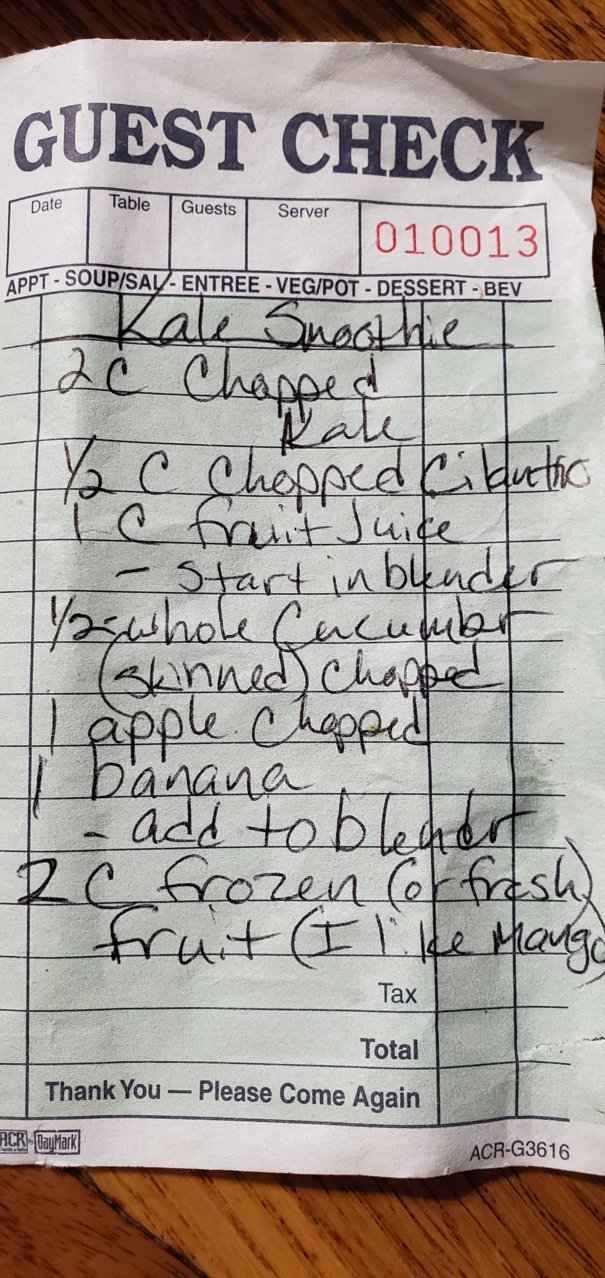 GUEST CHECK
Date Table Guests Server 010013
APPT - SOUP/SAL - ENTREE - VEG/POT - DESSERT - BEV
Kale Smoothie
2 C Chopped
Kale
1/2 C Chopped Cilantro
1 C fruit Juice
- Start in blender
1/2 - whole Cucumber
(skinned) Chopped
1 apple Chopped
1 banana
- add to blender
2 C frozen (or fresh)
fruit (I like Mango)
Tax
Total
Thank You — Please Come Again
ACR DayMark ACR-G3616